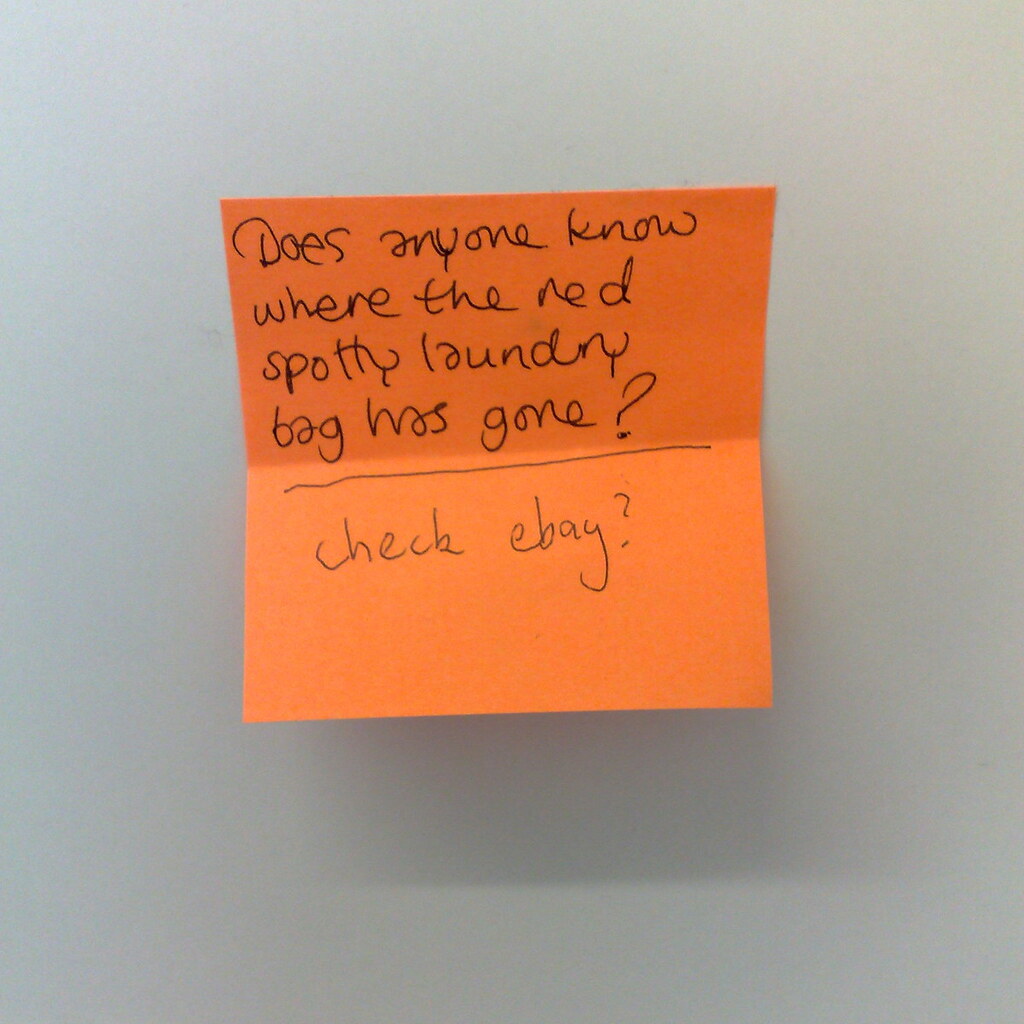 Does anyone know
where the red
spotty laundry
bag has gone?
check ebay?